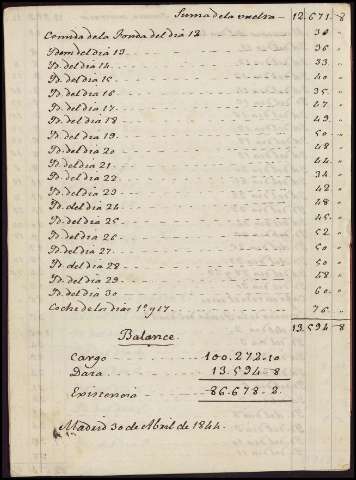 Suma de la vuelta 12.671-8
Comida de la Fonda del dia 12 36 "
Idem del dia 13 36 "
Id. del dia 14 33 "
Id. del dia 15 40 "
Id. del dia 16 35 "
Id. del dia 17 47 "
Id. del dia 18 49 "
Id. del dia 19 50 "
Id. del dia 20 48 "
Id. del dia 21 44 "
Id. del dia 22 34 "
Id. del dia 23 42 "
Id. del dia 24 48 "
Id. del dia 25 45 "
Id. del dia 26 52 "
Id. del dia 27 50 "
Id. del dia 28 50 "
Id. del dia 29 48 "
Id. del dia 30 60 "
Coche de los dias 1º y 17 76 "
13.594-8
Balance.
Cargo 100.272-10
Data 13.594-8
Existencia 86.678-2.
Madrid 30 de Abril de 1844.